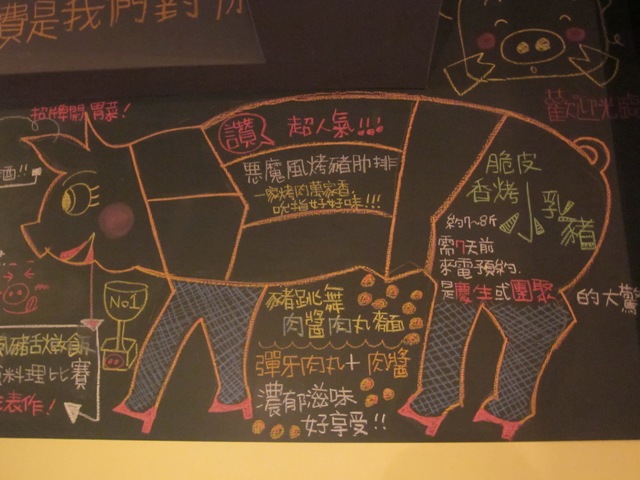 費是我們對你
歡迎光臨
招牌開胃菜!
讚 超人氣!!!
惡魔風烤豬肋排
一家烤肉萬家香,
吮指好好味!!!
脆皮
香烤小乳豬
約7~8斤
需7天前
來電預約.
是慶生或團聚的大驚
酒!!
No.1
豬舌燉飯
料理比賽
表作!
豬跳舞
肉醬肉丸麵
彈牙肉丸+肉醬
濃郁滋味
好享受!!